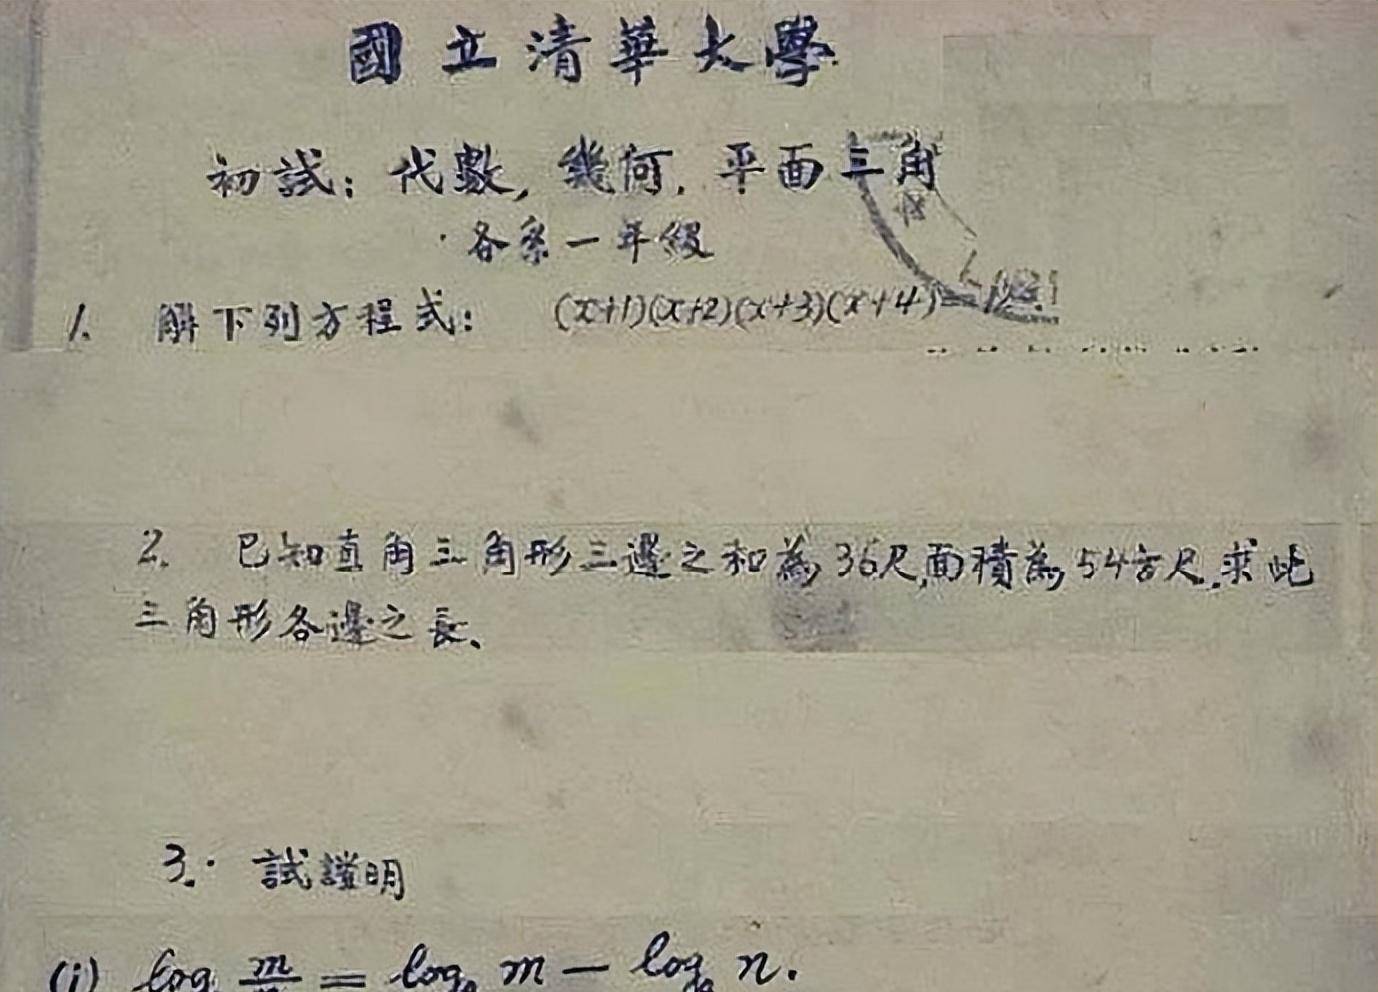 國立清華大學
初試：代數，幾何，平面三角
各系一年級
1. 解下列方程式： (x+1)(x+2)(x+3)(x+4)=
2. 已知直角三角形三邊之和為36尺,面積為54方尺.求此
三角形各邊之長、
3. 試證明
(i) log m = log m − log n.